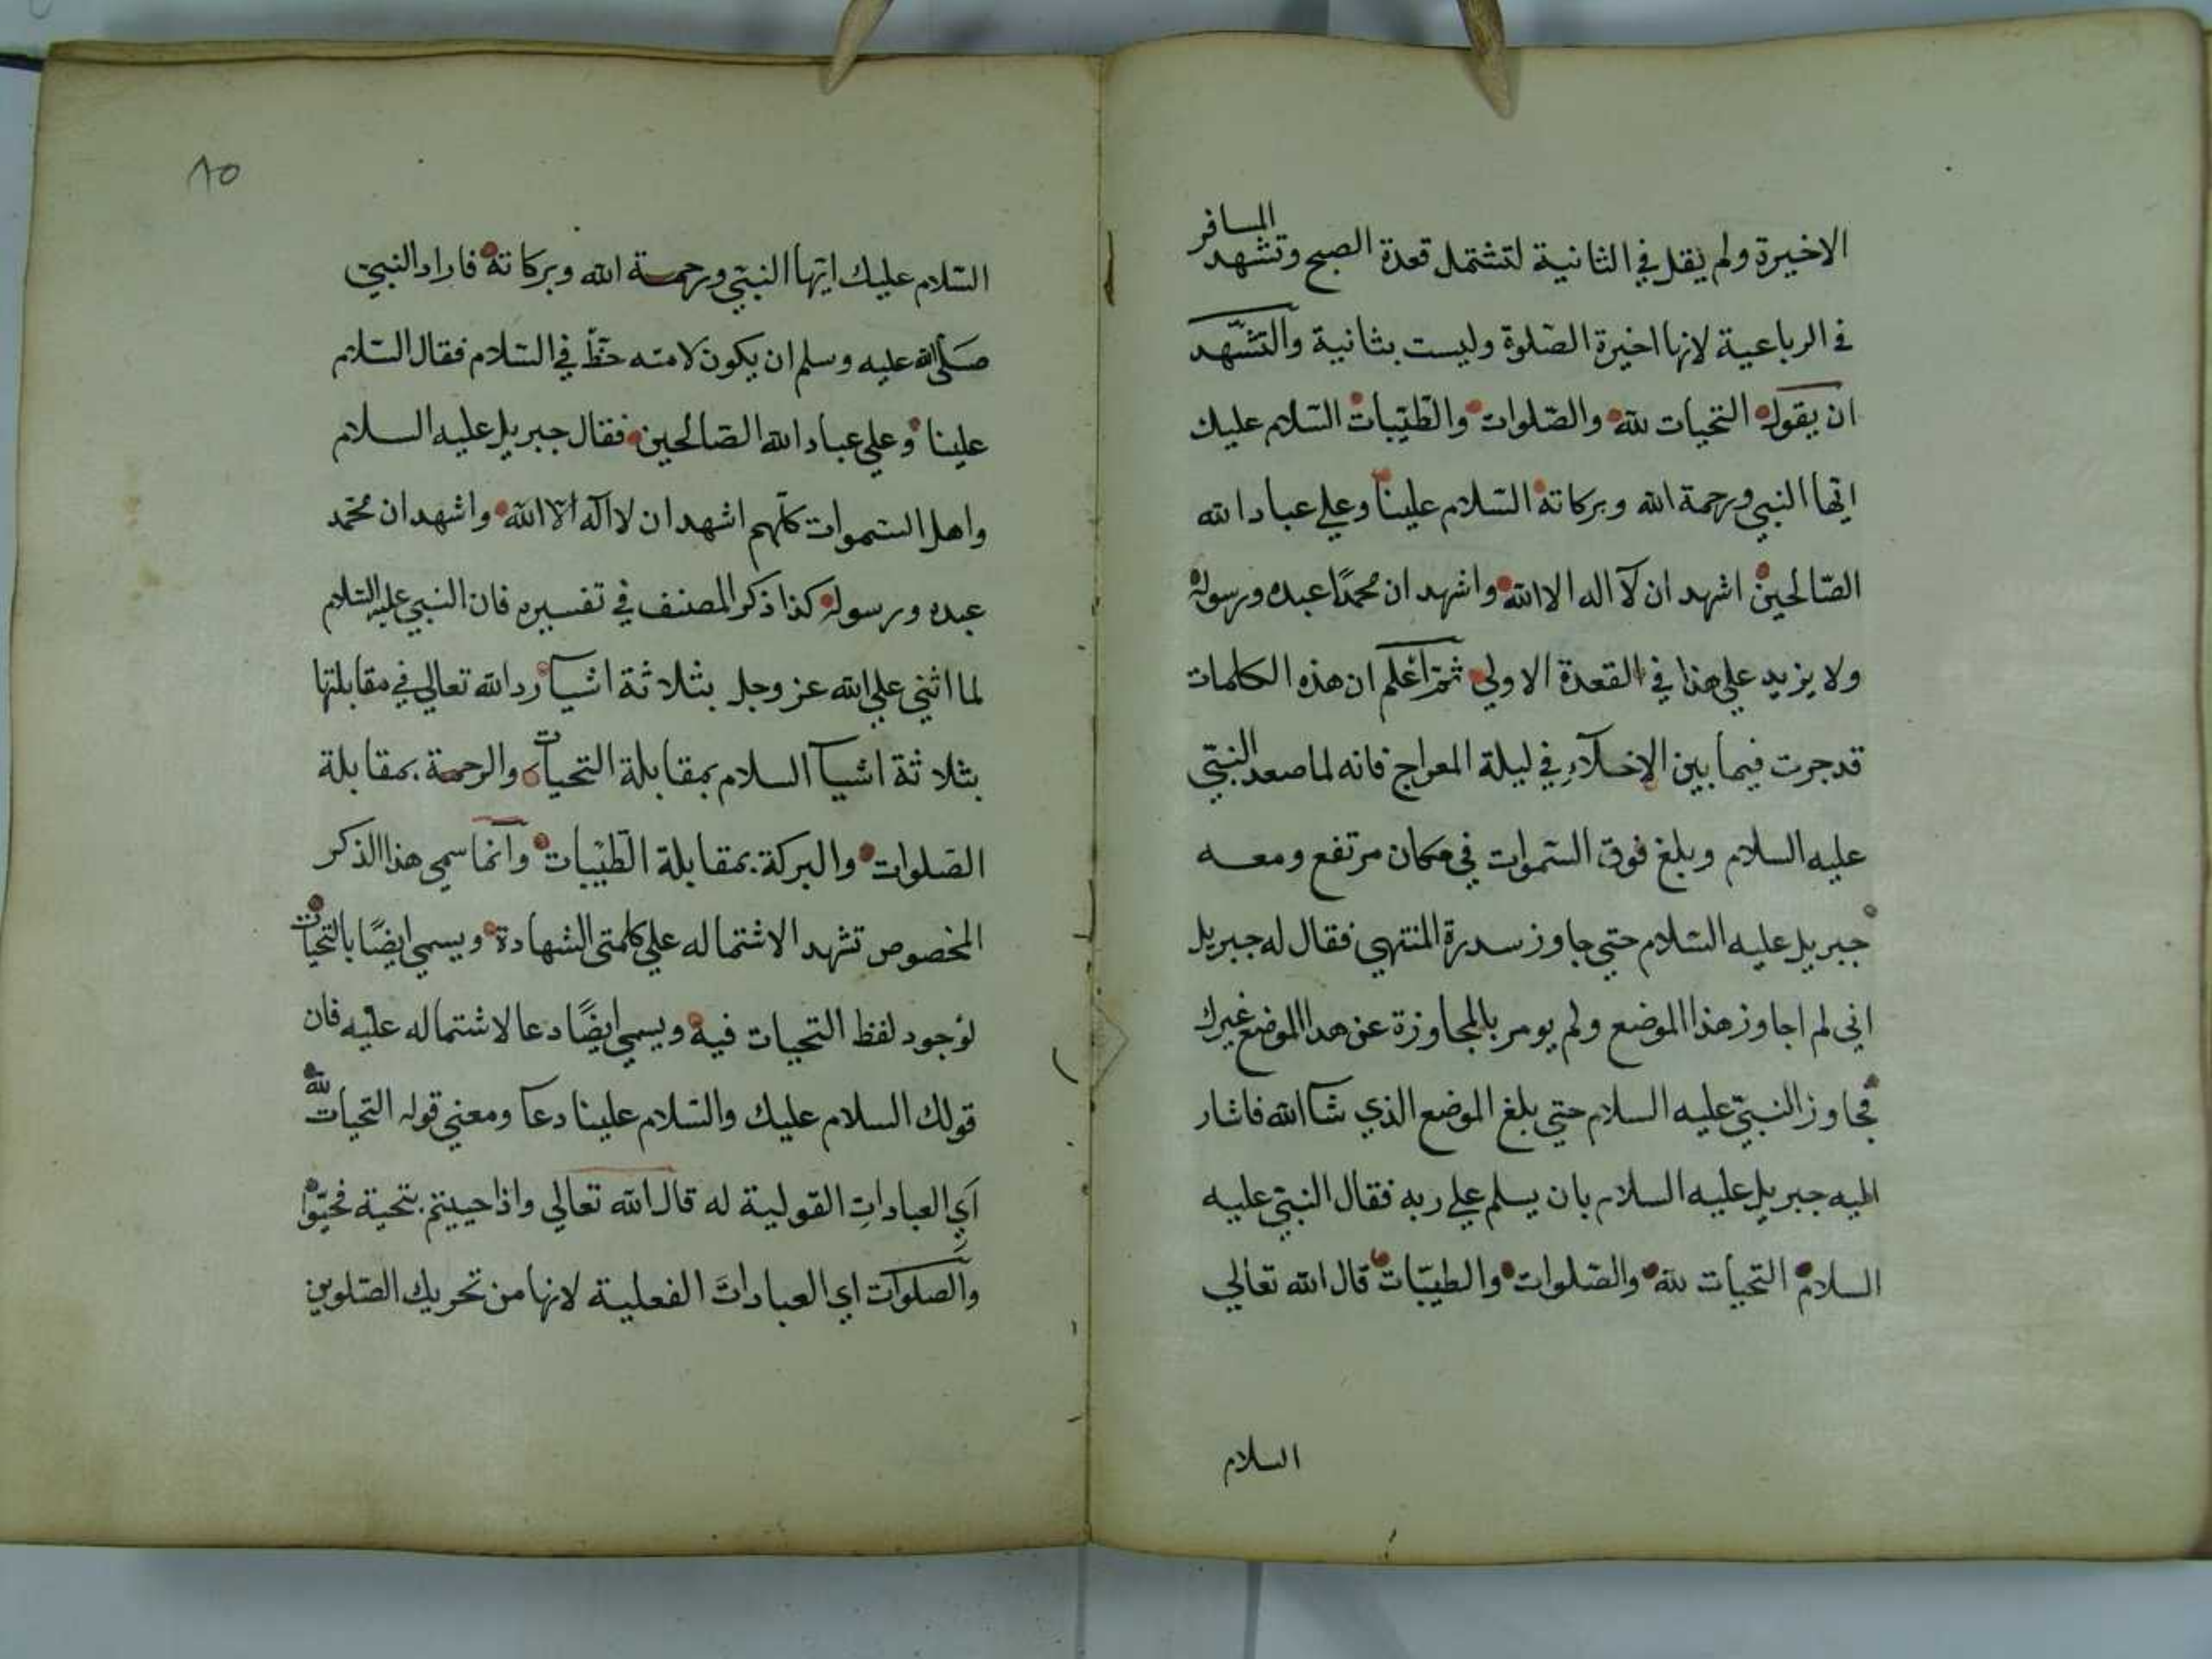 الاخيرة ولم يقل في الثانية لتشتمل قعدة الصبح وتشهد المسافر
في الرباعية لانها اخيرة الصلوة وليست بثانية والتشهد
ان يقول التحيات لله والصلوات والطيبات السلام عليك
ايها النبي ورحمة الله وبركاته السلام علينا وعلي عباد الله
الصالحين اشهد ان لا اله الا الله واشهد ان محمدًا عبده ورسوله
ولا يزيد علي هذا في القعدة الاولي ثم اعلم ان هذه الكلمات
قد جرت فيما بين الاخلاء في ليلة المعراج فانه لما صعد النبي
عليه السلام وبلغ فوق السموات في مكان مرتفع ومعه
جبريل عليه السلام حتي جاوز سدرة المنتهي فقال له جبريل
اني لم اجاوز هذا الموضع ولم يومر بالمجاوزة عن هدا الموضع غيرك
فجاوز النبي عليه السلام حتي بلغ الموضع الذي شآ الله فاشار
اليه جبريل عليه السلام بان يسلم علي ربه فقال النبي عليه
السلام التحيات لله والصلوات والطيبات قال الله تعالي
السلام
٨٥
السلام عليك ايها النبي ورحمة الله وبركاته فاراد النبي
صلى الله عليه وسلم ان يكون لامته حظ في السلام فقال السلام
علينا وعلي عباد الله الصالحين فقال جبريل عليه السلام
واهل السموات كلهم اشهد ان لا اله الا الله واشهد ان محمد
عبده ورسوله كذا ذكر المصنف في تفسيره فان النبي عليه السلام
لما اثني علي الله عز وجل بثلاثة اشيآ رد الله تعالي في مقابلتها
بثلاثة اشيآ السلام بمقابلة التحيات والرحمة بمقابلة
الصلوات والبركة بمقابلة الطيبات وانما سمي هذا الذكر
المخصوص تشهد الاشتماله علي كلمتي الشهادة ويسمي ايضًا بالتحيات
لوجود لفظ التحيات فيه ويسمي ايضًا دعا لاشتماله عليه فان
قولك السلام عليك والسلام علينا دعآ ومعني قوله التحيات لله
اي العبادات القولية له قال الله تعالي واذا حييتم بتحية فحيوا
والصلوات اي العبادات الفعلية لانها من تحريك الصلوين